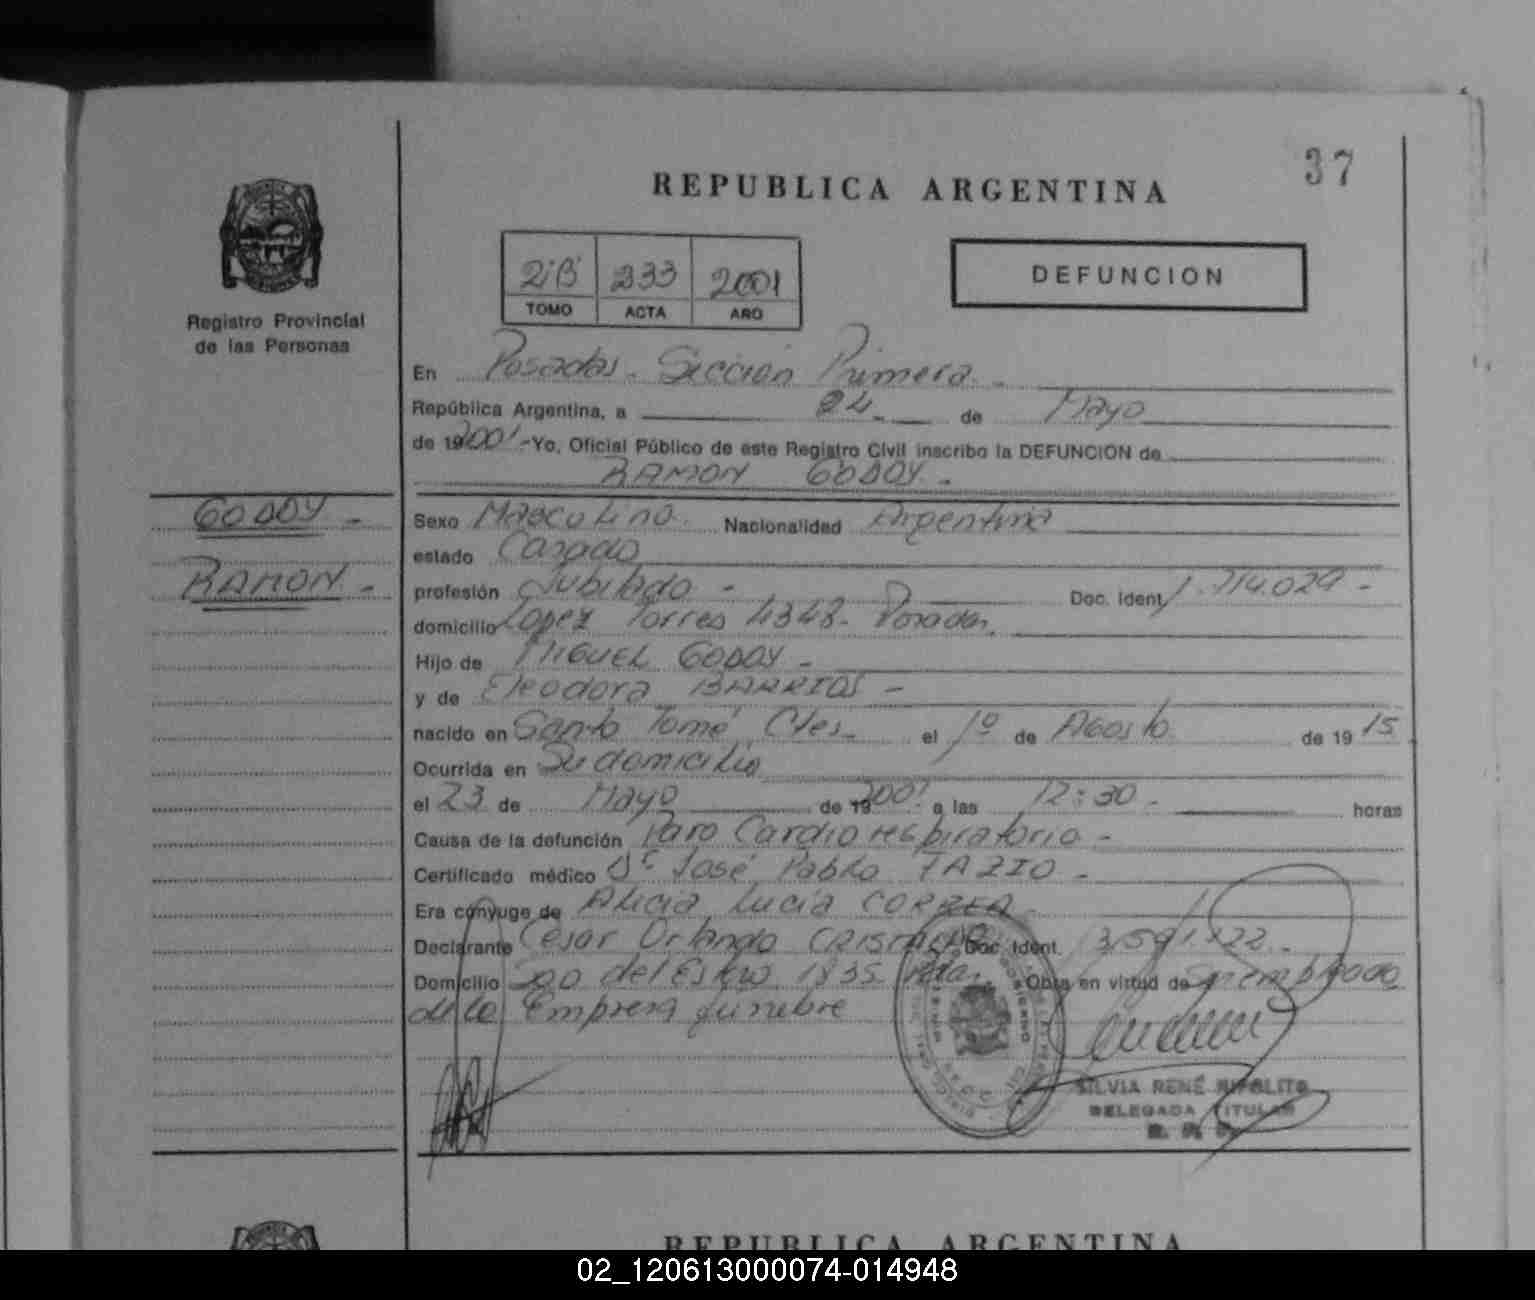 37
REPUBLICA ARGENTINA
Registro Provincial
de las Personas
2'B' 233 2001
TOMO ACTA AÑO
DEFUNCION
En Posadas - Sección Primera -
República Argentina, a 24 de Mayo
de 19 2001 - Yo, Oficial Público de este Registro Civil inscribo la DEFUNCION de
RAMON GODOY -
GODOY -
RAMON -
Sexo Masculino Nacionalidad Argentina
estado Casado
profesión Jubilado - Doc. Ident. 1.714.029 -
domicilio Lopez Torres 4348 - Posadas
Hijo de MIGUEL GODOY -
y de Eleodora BARRIOS -
nacido en Santo Tomé Ctes. el 1º de Agosto de 19 15
Ocurrida en Su domicilio
el 23 de Mayo de 19 2001 a las 12:30 - horas
Causa de la defunción Paro Cardiorespiratorio -
Certificado médico Dr José Pablo FAZIO -
Era cónyuge de Alicia Lucía CORREA -
Declarante César Orlando Doc. Ident.
Domicilio del Estero 1835 Pdas. Obra en virtud de Ser empleado
de la Empresa fúnebre
SILVIA RENÉ RIPOLITO
DELEGADA TITULAR
REPUBLICA ARGENTINA
02_120613000074-014948